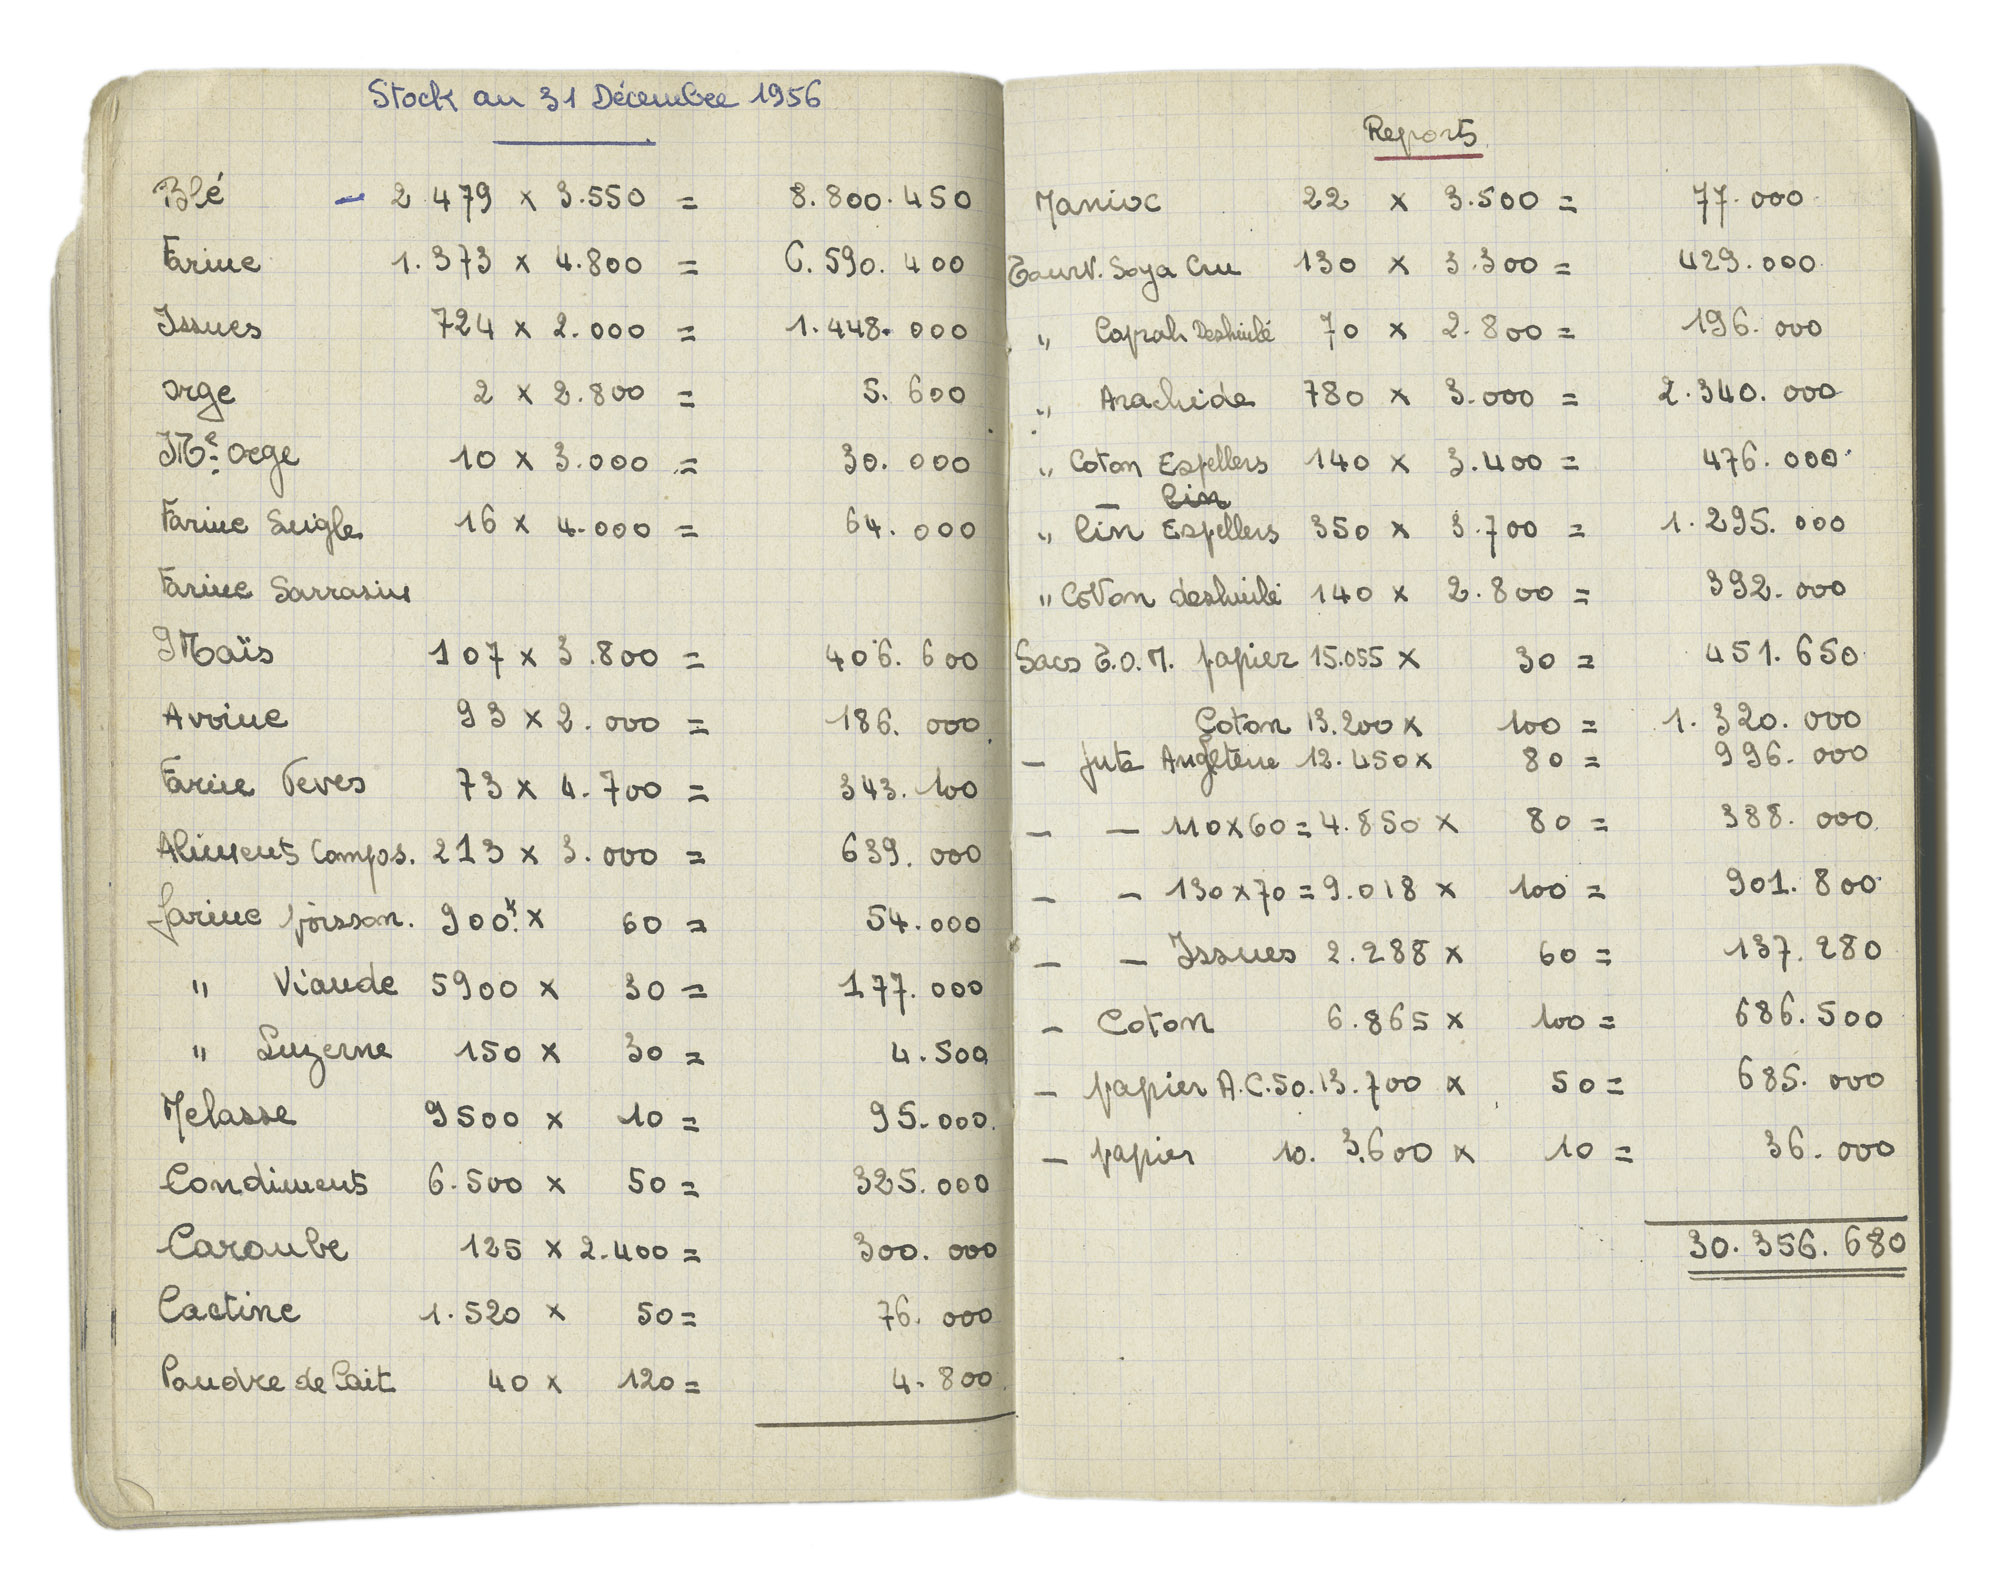 Stock au 31 Décembre 1956
Blé - 2 479 x 3.550 = 8.800.450
Farine 1.373 x 4.800 = 6.590.400
Issues 724 x 2.000 = 1.448.000
orge 2 x 2.800 = 5.600
Me orge 10 x 3.000 = 30.000
Farine Seigle 16 x 4.000 = 64.000
Farine Sarrasin
Maïs 107 x 3.800 = 406.600
Avoine 93 x 2.000 = 186.000
Farine Feves 73 x 4.700 = 343.100
Aliments Compos. 213 x 3.000 = 639.000
farine poisson. 900k x 60 = 54.000
" Viande 5900 x 30 = 177.000
" Luzerne 150 x 30 = 4.500
Melasse 9500 x 10 = 95.000
Condiments 6.500 x 50 = 325.000
Caroube 125 x 2.400 = 300.000
Cactine 1.520 x 50 = 76.000
Poudre de Lait 40 x 120 = 4.800
Reports
Manioc 22 x 3.500 = 77.000
Tourt. Soya Cru 130 x 3.300 = 429.000
" Coprah Deshuilé 70 x 2.800 = 196.000
" Arachide 780 x 3.000 = 2.340.000
" Coton Expellers 140 x 3.400 = 476.000
- Lin
" Lin Expellers 350 x 3.700 = 1.295.000
" Coton deshuilé 140 x 2.800 = 392.000
Sacs T.O.M. papier 15.055 x 30 = 451.650
Coton 13.200 x 100 = 1.320.000
- Jute Angleterre 12.450 x 80 = 996.000
- - 110 x 60 = 4.850 x 80 = 388.000
- - 130 x 70 = 9.018 x 100 = 901.800
- - Issues 2.288 x 60 = 137.280
- Coton 6.865 x 100 = 686.500
- papier A.C.50. 13.700 x 50 = 685.000
- papier 10. 3.600 x 10 = 36.000
30.356.680